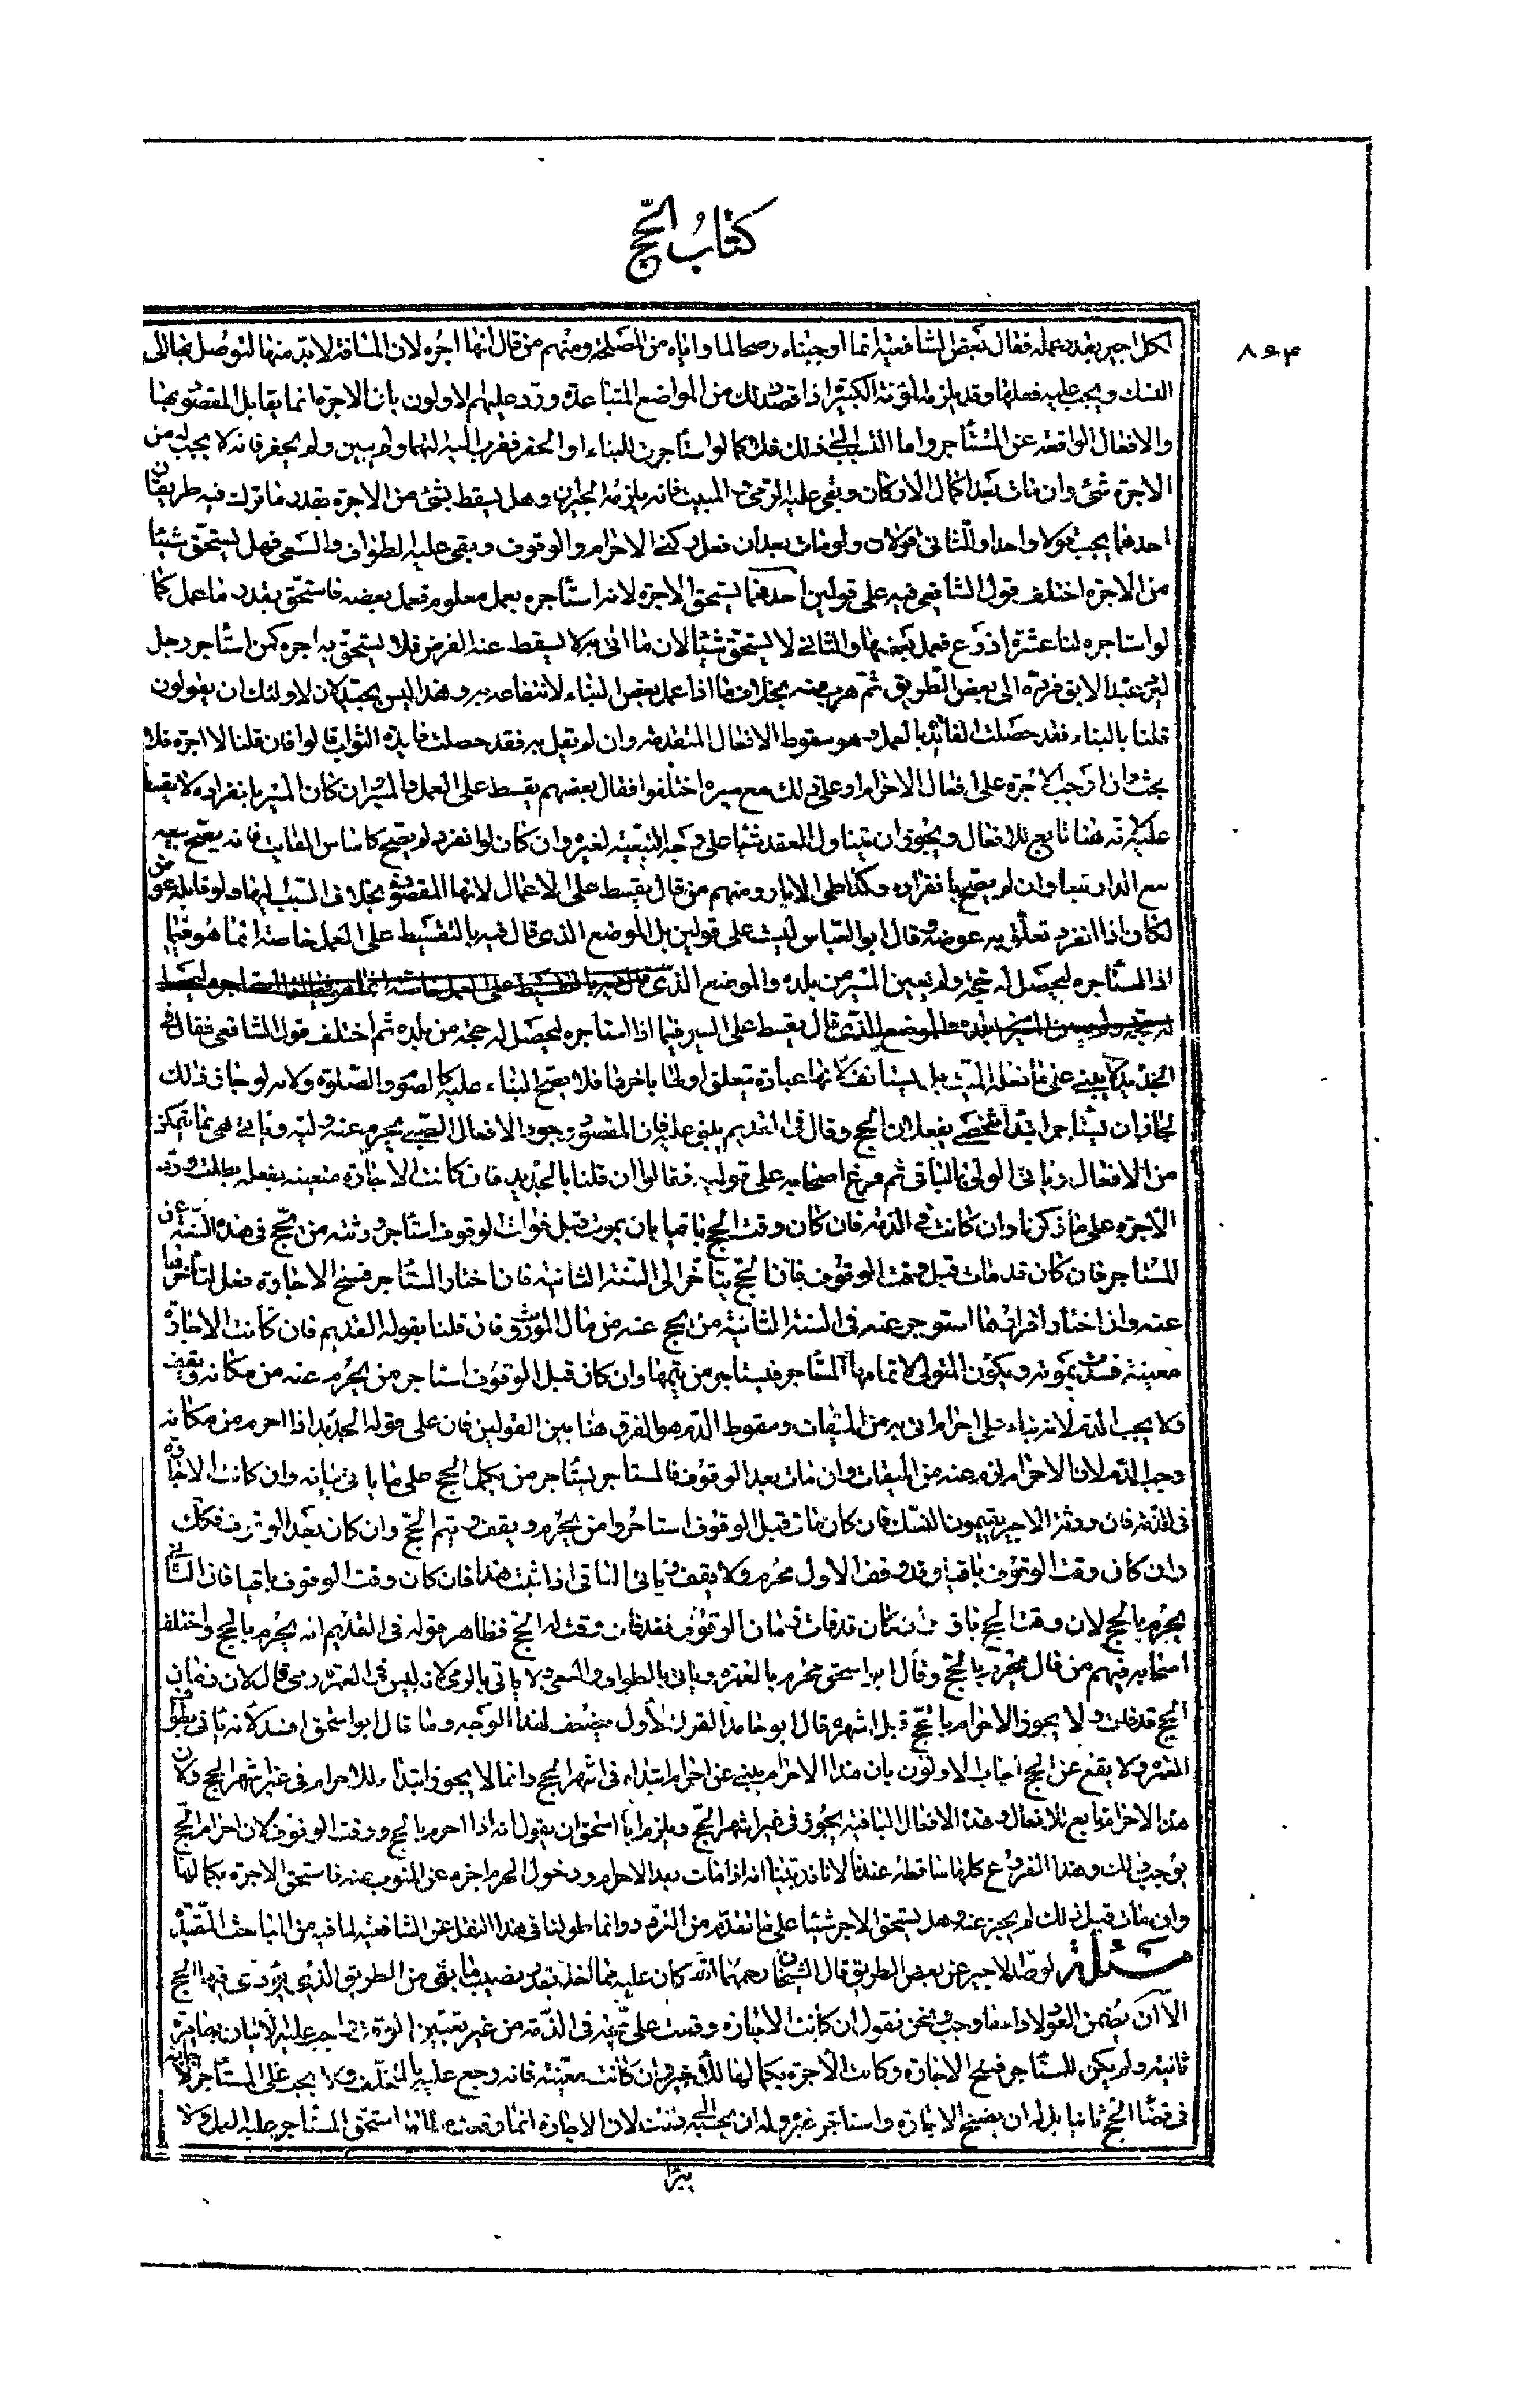 كتابُ الحجّ
٨٦٤
لكل اجير بقدر عمله فقال بعض الشافعية انما اوجبناه من المصلحة ومنهم من قال انها اجرة لان المسافة لابد منها لتوصل بها الى
النسك ويجب عليه فعلها وقد يلزمه المؤنة الكثيرة اذا قصد ذلك من المواضع المتباعدة وردّ عليهم الاولون بان الاجرة انما يقابل المقصود بها
والافعال الواقعة عن المستأجر واما السبب الى ذلك فلا كما لو استأجرت للبناء او الحفر فقرب اليه ولم يبن ولم يحفر فانه لا يجب له من
الاجرة شئ وان مات بعد اكمال الاركان وبقى عليه الرمى و المبيت فانه يلزمه الجبران وهل يسقط بشئ من الاجرة بقدر ما تركت فيه طريقان
احدهما يجب قولا واحدا والثانى قولان ولو مات بعد ان فعل ركنى الاحرام والوقوف وبقى عليه الطواف والسعى فهل يستحق شيئا
من الاجرة اختلف قول الشافعى فيه على قولين احدهما يستحق الاجرة لانه استأجره بعمل معلوم فعمل بعضه فاستحق بقدر ما عمل كما
لو استاجره لبناء عشرة اذرع فعمل بعضها والثانى لا يستحق شيئا لان ما اتى به لا يسقط عنه الفرض فلا يستحق به اجرة كمن استأجر رجل
ليرد عبدا لابق فرده الى بعض الطريق ثم هرب منه بخلاف ما اذا عمل بعض البناء لانتفاعه به وهذا ليس بجيد لان لاولئك ان يقولون
قلنا بالبناء فقد حصلت الفائدة بالعمل وهو سقوط الافعال المتقدمة وان لم نقل به فقد حصلت فايدة الثواب قالوا فان قلنا لا اجرة فلا
بحث وان اوجبنا الاجرة على افعال الاحرام او على ذلك مع سيره اختلفوا فقال بعضهم يقسط على العمل والسير وان كان السير بانفراده لا يقسط
عليه لانه هنا تابع للافعال ويجوز ان يتناول العقد شيئا على وجه التبعية لغيره وان كان لو انفرد لم يصح كاساس الحائط فانه يصح بيعه
مع الدار تبعا وان لم يصح بانفراده وكذا طى الابار ومنهم من قال يقسط على الاعمال لانها المقصود بخلاف السبب اليها ولو قابله عوض
لكان اذا انفرد تعلق به عوضه وقال ابو العباس ليست على قولين بل الموضع الذى قال فيه بالتقسيط على العمل خاصة انما هو فيما
اذا استأجره ليحصل له حجة ولم يعين السير من بلده والموضع الذى
قال يقسط على السير فيما اذا استأجره ليحصل له حجة من بلده ثم اختلف قول الشافعى فقال فى
الجديد لا يبنى على ما فعله الميت بل يستأنف لانها عبادة يتعلق اولها باخرها فلا يصح البناء عليه كالصوم والصلوة ولانه لو جاز ذلك
لجاز ان يستأجر ابتداء شخصين يفعلان الحج وقال فى القديم يبنى عليه فان المقصود وجود الافعال كالصبى يحرم عنه وليه ويأتى هى بما يتمكن
من الافعال ويأتى الولى بالباقى ثم فرع اصحابه على قوليه فقالوا ان قلنا بالجديد فان كانت الاجارة متعينة بفعله بطلت وردّ
الاجرة على ما ذكرنا وان كانت فى الذمة فان كان وقت الحج باقيا بان يموت قبل فوات الوقوف استأجر ورثته من يحج فى هذه السنة عن
المستأجر فان كان قد مات قبل وقت الوقوف فان الحج يتأخر الى السنة الثانية فان اختار المستأجر فسخ الاجارة فعل لتأخرها
عنه وان اختار اقرارها استوجر عنه فى السنة الثانية من يحج عنه من مال الموروث وان قلنا بقوله القديم فان كانت الاجارة
معينة فسدت بموته ويكون المتولى لاتمامها المستأجر فيستاجر من يتمها وان كان قبل الوقوف استاجر من يحرم عنه من مكانه ويقف
ولا يجب الدم لانه بناء على احرام اتى به من الميقات وسقوط الدم هو الفرق هنا بين القولين فان على قوله الجديد اذا احرم من مكانه
وجب الدم لان الاحرام لزمه عنه من الميقات وان مات بعد الوقوف فالمستاجر يستأجر من يكمل الحج على ما يأتى بيانه وان كانت الاجارة
فى الذمة فان ورثة الاجير يتمون النسك فان كان مات قبل الوقوف استأجروا من يحرم ويقف ويتم الحج وان كان بعد الوقوف فكذلك
وان كان وقت الوقوف باقيا وقد وقف الاول محرم ولا يقف ويأتى الباقى اذا ثبت هذا فان كان وقت الوقوف باقيا فان الثانى
يحرم بالحج لان وقت الحج باق وان كان قد فات زمان الوقوف فقد فات وقت الحج فظاهر قوله فى القديم انه يحرم بالحج واختلف
اصحابه فمنهم من قال يحرم بالحج وقال ابو اسحق يحرم بالعمرة ويأتى بالطواف والسعى ولا يأتى بالرمى لانه ليس فى العمرة رمى قال لان زمان
الحج قد فات ولا يجوز الاحرام بالحج قبل اشهره قال ابو حامد القول الاول يضعف لهذا الوجه وما قال ابو اسحق افسد لانه يأتى بطواف
العمرة ولا يقع عن الحج اجاب الاولون بان هذا الاحرام يبنى عن احرام ابتداه فى اشهر الحج وانما لا يجوز ابتداء للاحرام فى غير اشهر الحج ولان
هذا الاحرام تابع للافعال وهذه الافعال الباقية يجوز فى غير اشهر الحج ويلزم ابا اسحق ان يقول انه اذا احرم بالحج ووقت الوقوف كان احرام الحج
يوجب ذلك وهذا الفروع كلها ساقطة عندنا لانا قد بيّنا انه اذا مات بعد الاحرام ودخول الحرم اجزء عن المنوب عنه فاستحق الاجرة بكمالها
وان مات قبل ذلك لم يجز عنه وهل يستحق الاجر شيئا على ما تقدم من التردد وانما طولنا فى هذا النقل عن الشافعية لما فيه من المباحث المقيّدة
مسئلة لو صد الاجير عن بعض الطريق قال الشيخان رحمهما الله كان عليه مما اخذ بقدر نصيب ما بقى من الطريق الذى يؤدى فيها الحج
الا ان يضمن العود لاداء ما وجب ونحن نقول ان كانت الاجارة وقعت على حجة فى الذمة من غير تعيين الوقت وجب عليه الاتيان بها مرة
ثانية ولم يكن للمستأجر فسخ الاجارة وكانت الاجرة بكمالها للأجير وان كانت معينة فانه رجع عليه بالتخلف ولا يجب على المستأجر اجابته
فى قضاء الحج ثانيا بل له ان يفسخ الاجارة واستأجر غيره وله ان يجيبه لان الاجارة انما وقعت استحق المستأجر عليه العمل ولا
يبرا